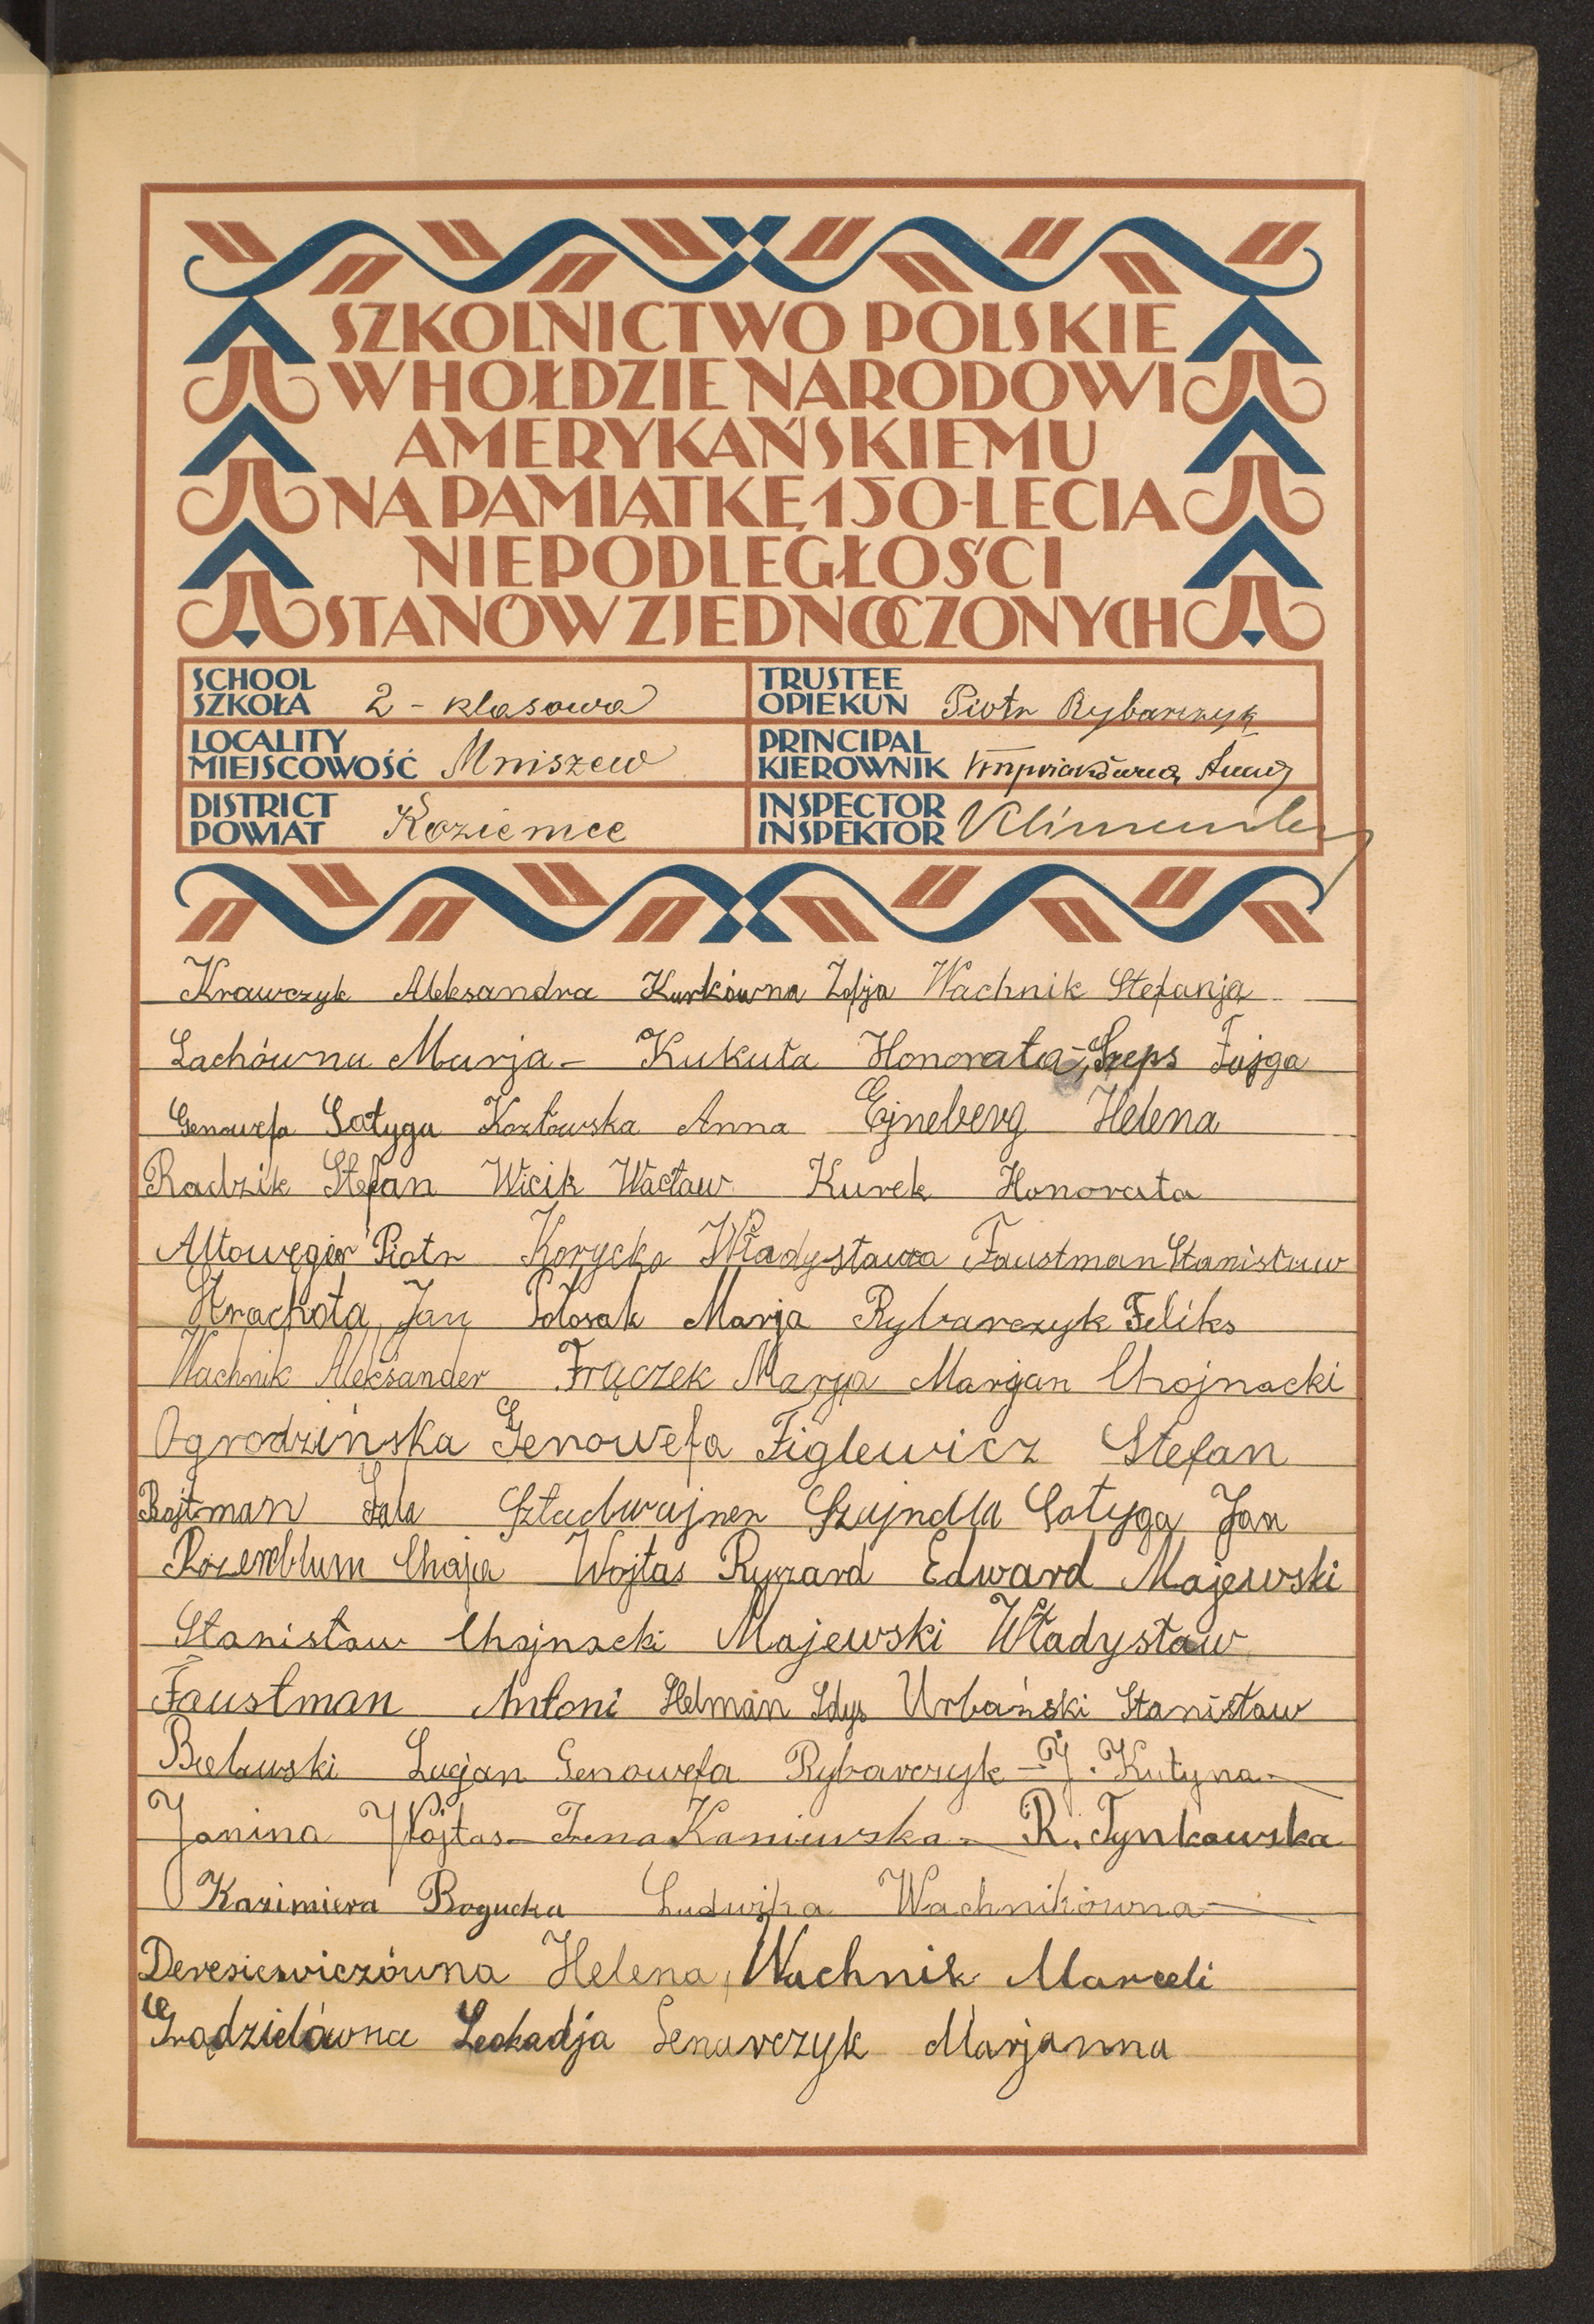 SZKOLNICTWO POLSKIE
W HOŁDZIE NARODOWI
AMERYKAŃSKIEMU
NA PAMIĄTKĘ 150-LECIA
NIEPODLEGŁOŚCI
STANÓW ZJEDNOCZONYCH
SCHOOL
SZKOŁA 2-klasowa
TRUSTEE
OPIEKUN Piotr Rybarczyk
LOCALITY
MIEJSCOWOŚĆ Mniszew
PRINCIPAL
KIEROWNIK
DISTRICT
POWIAT Kozienice
INSPECTOR
INSPEKTOR
Krawczyk Aleksandra Kurkówna Zofja Wachnik Stefanja
Lachówna Marja - Kukuła Honorata, Szeps Fajga
Genowefa Sałyga Kozłowska Anna Ejneberg Helena
Radzik Stefan Wicik Wacław Kurek Honorata
Piotr Korycka Władysława Faustman Stanisław
Strachota Jan Marja Rybarczyk Feliks
Wachnik Aleksander Frączek Marja Marjan Chojnacki
Ogrodzińska Genowefa Figlewicz Stefan
Rajtman Sztadwajner Szajndla Sałyga Jan
Rozenblum Chaja Wojtas Ryszard Edward Majewski
Stanisław Chojnacki Majewski Władysław
Faustman Antoni Helman Urbański Stanisław
Lucjan Genowefa Rybarczyk - J. Kutyna -
Janina Wojtas - Irena Kaniewska - R. Tynkowska
Kazimiera Bogucka Ludwika Wachnikówna -
Deresiewiczówna Helena, Wachnik Marceli
Grądzielówna Leokadja Senarczyk Marjanna